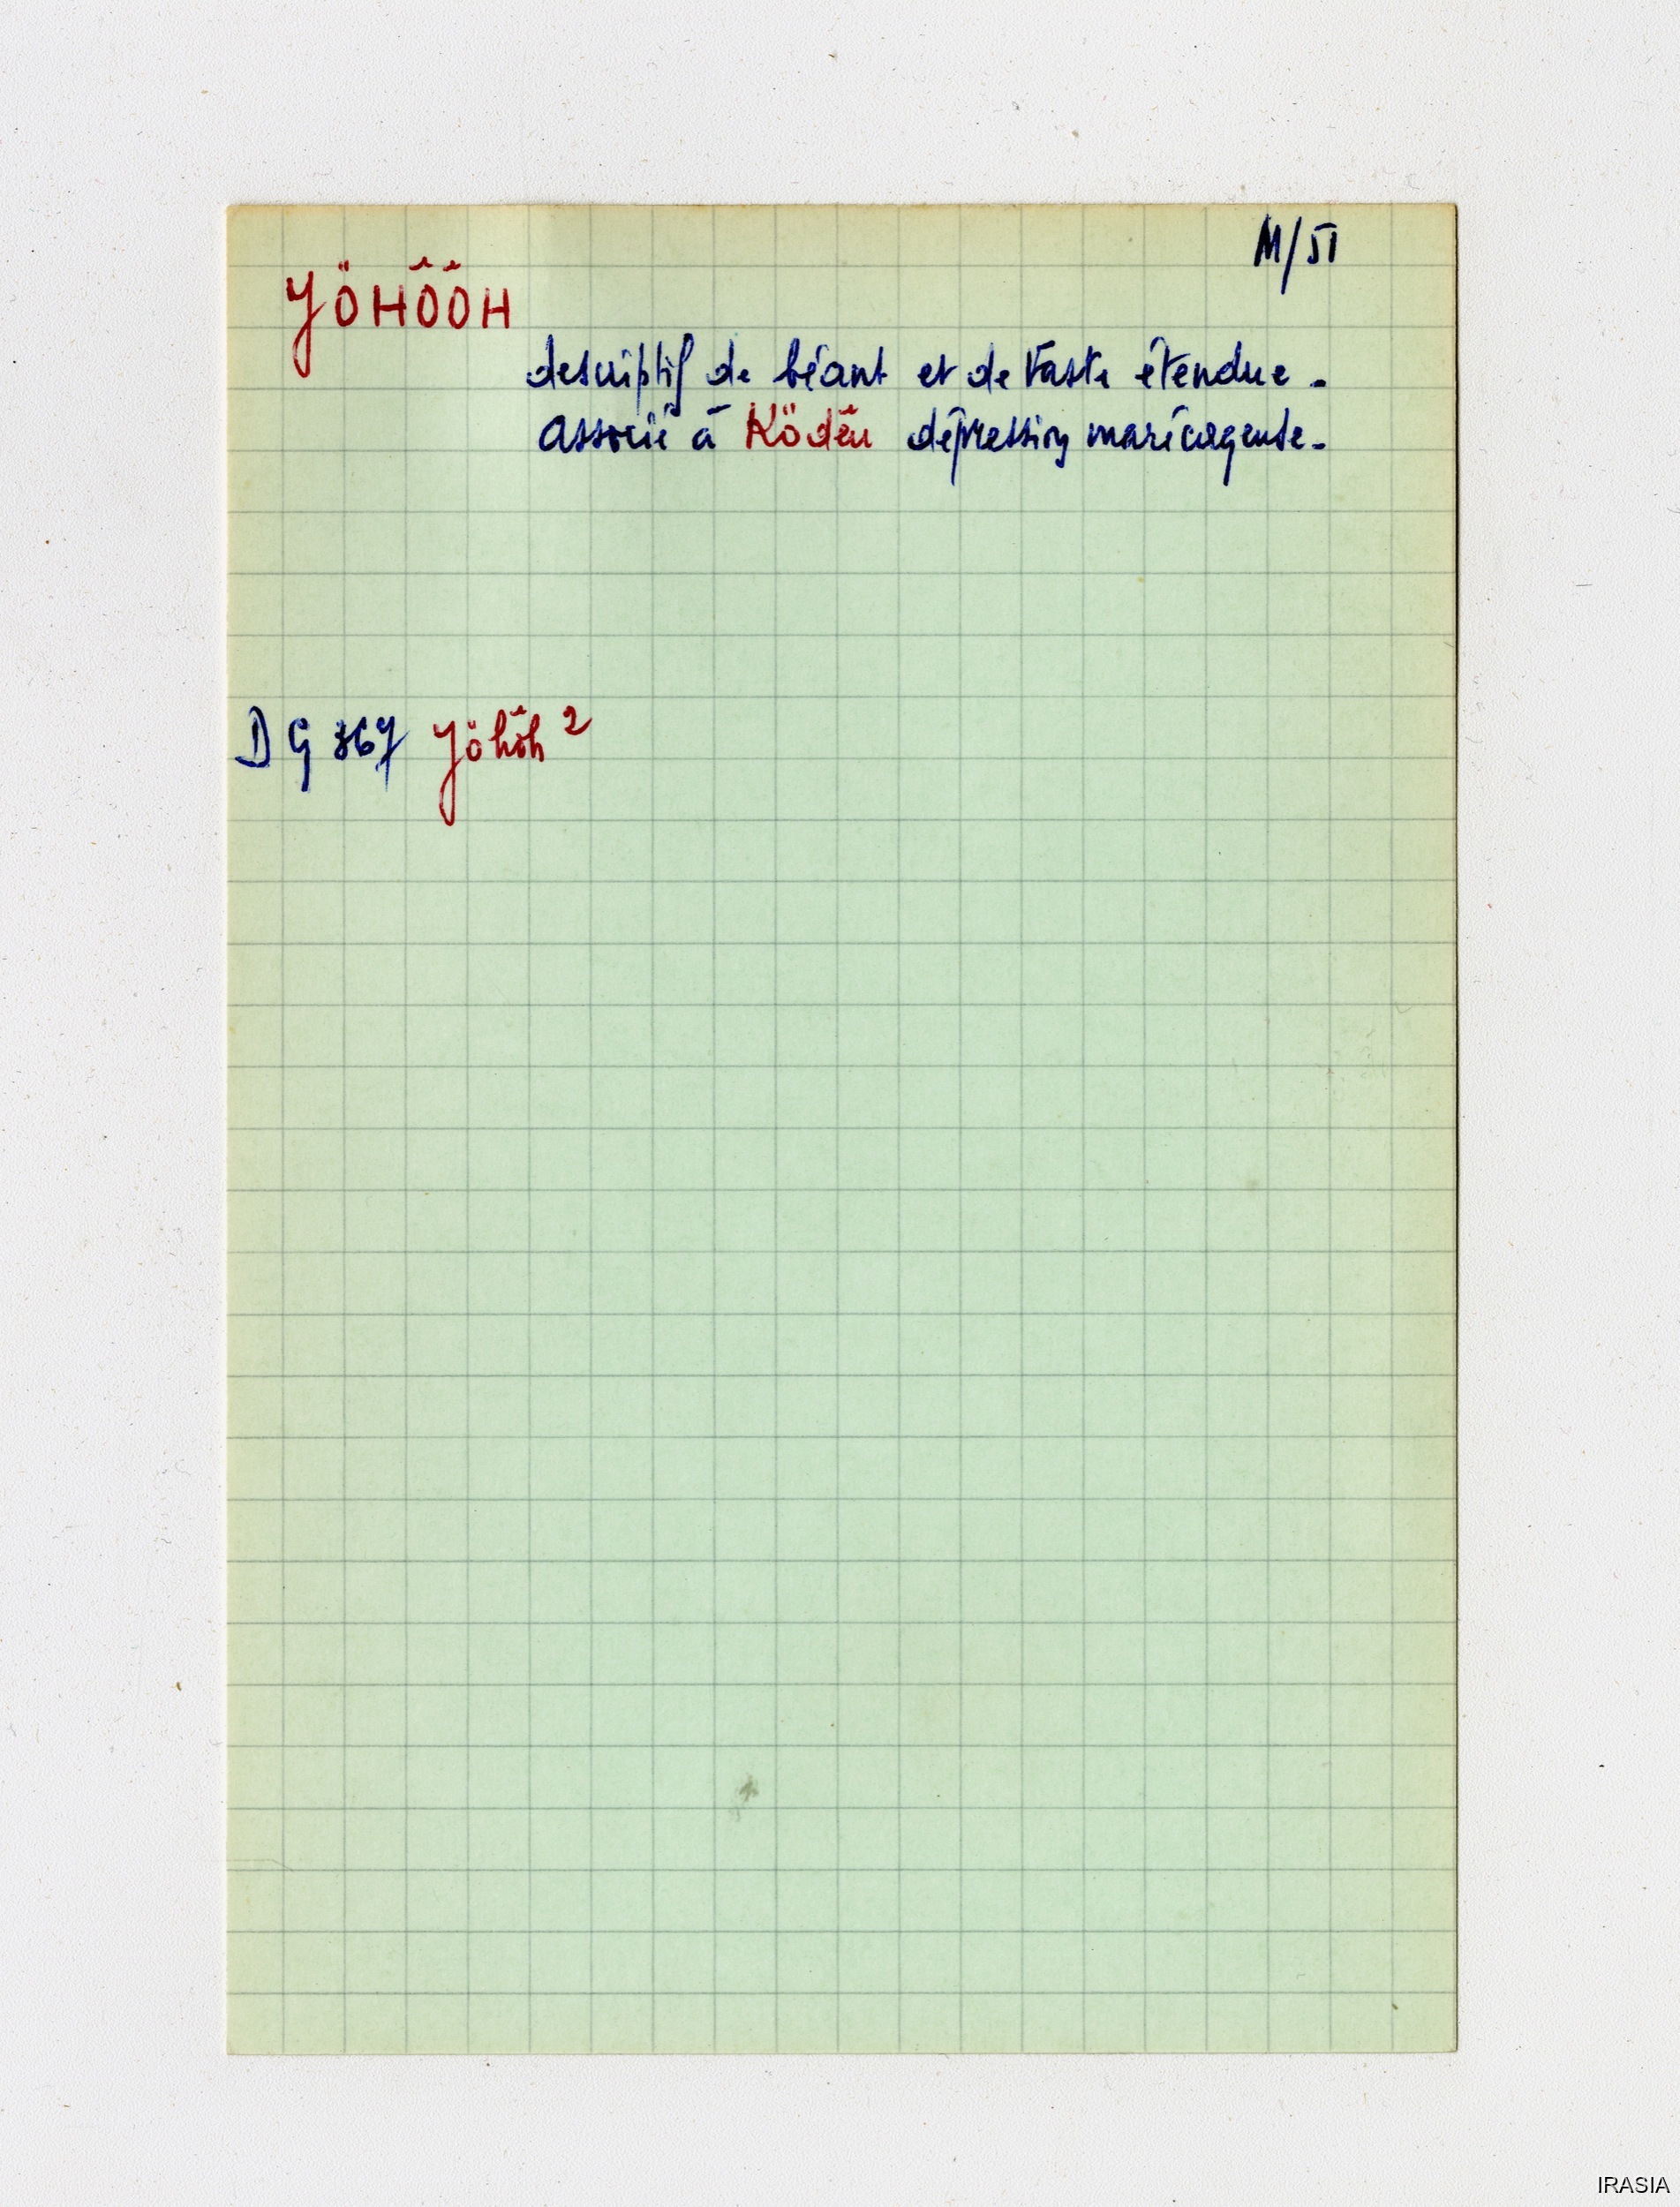 M/51
YÖHÔÔH
descriptif de béant et de vaste étendue -
associé à Ködêu dépression marécageuse -
DG 367 Yöhôh 2
IRASIA